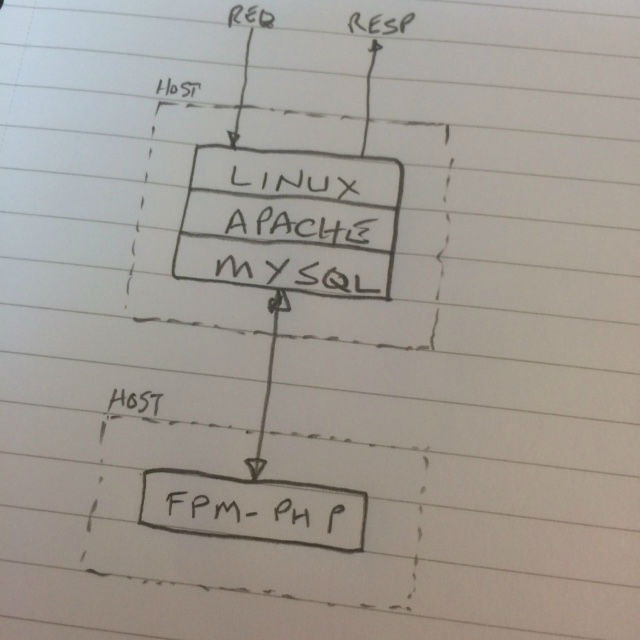 REQ RESP
HOST
LINUX
APACHE
MYSQL
HOST
FPM-PHP